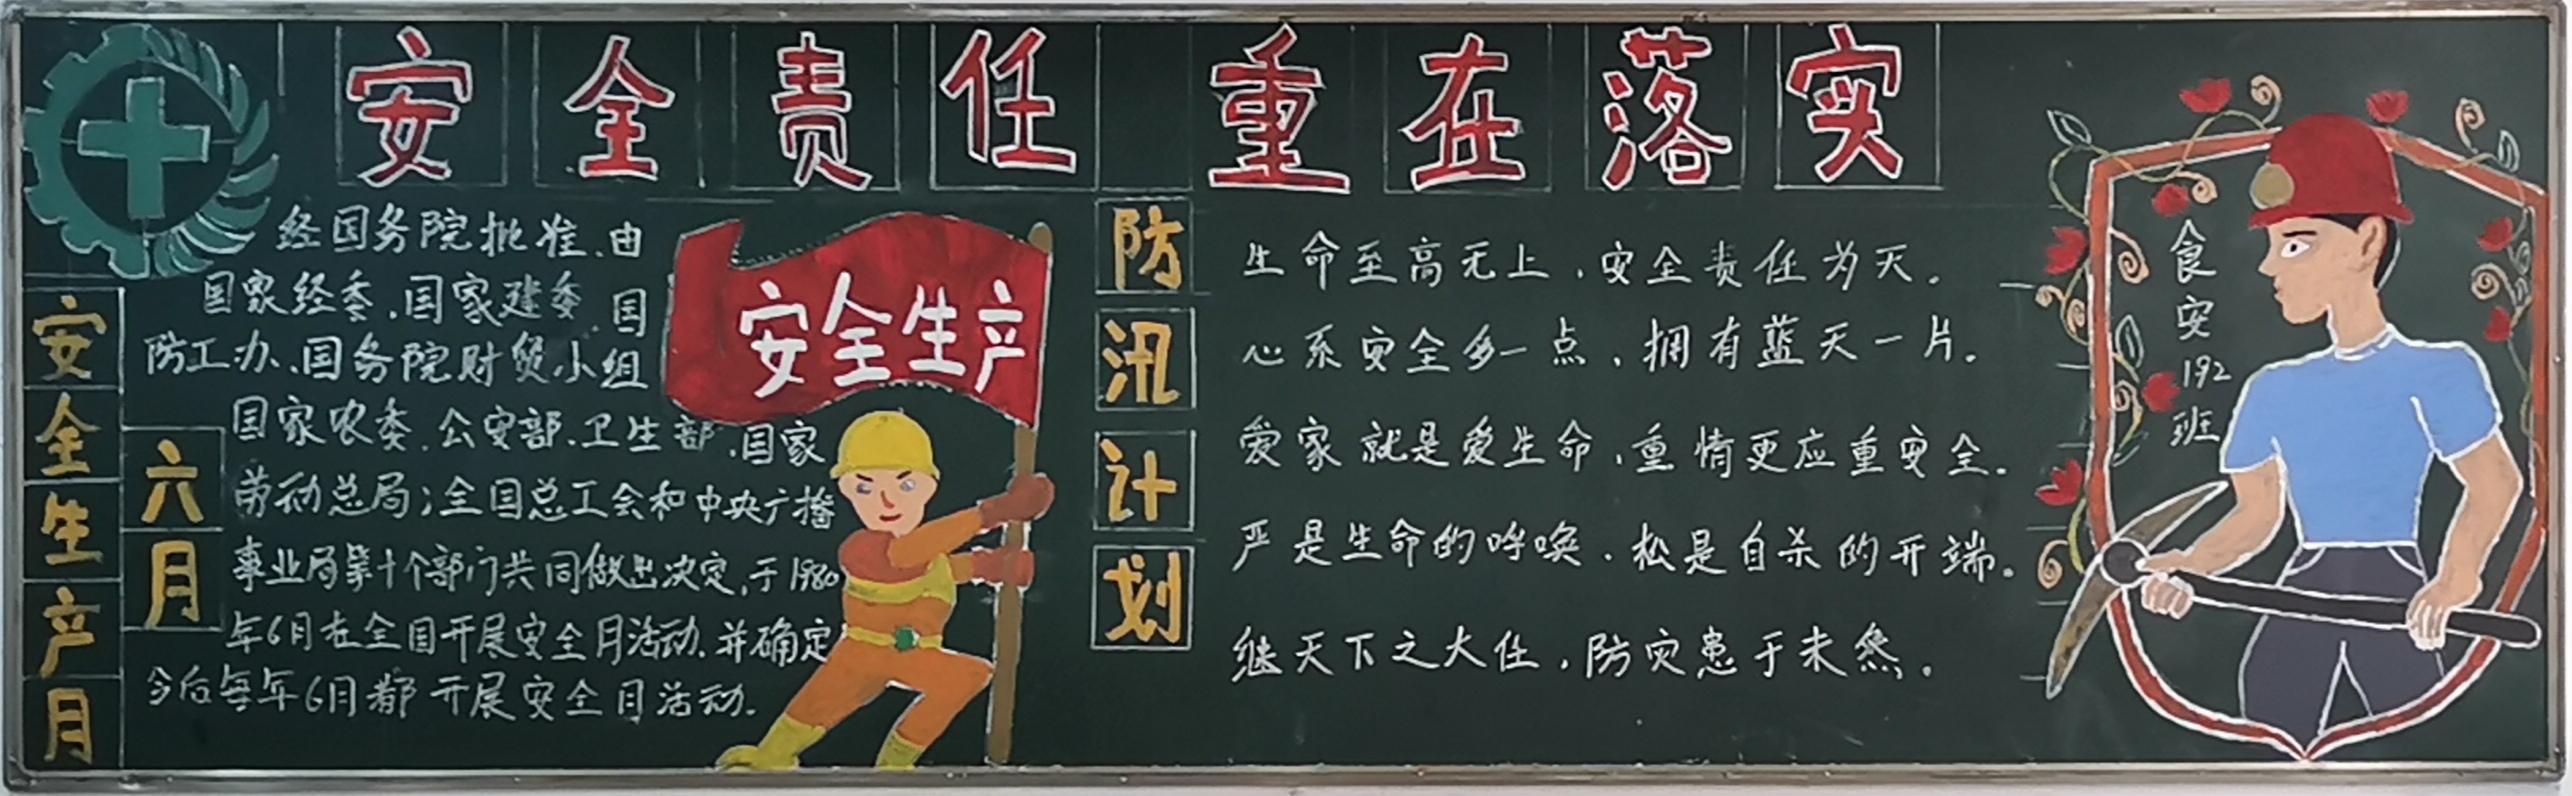 安全责任重在落实
安全生产月
六月
经国务院批准、由
国家经委、国家建委、国
防工办、国务院财贸小组
国家农委、公安部、卫生部、国家
劳动总局；全国总工会和中央广播
事业局第十个部门共同做出决定,于1980
年6月在全国开展安全月活动、并确定
今后每年6月都开展安全月活动.
安全生产
防汛计划
生命至高无上，安全责任为天。
心系安全多一点，拥有蓝天一片。
爱家就是爱生命，重情更应重安全。
严是生命的呼唤、松是自杀的开端。
继天下之大任，防灾患于未然。
食安192班